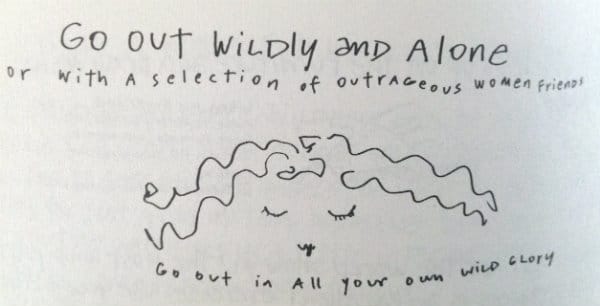 Go out WiLDLy and Alone
or with A selection of outrAGeous women Friends
Go out in All your own wilD GLory